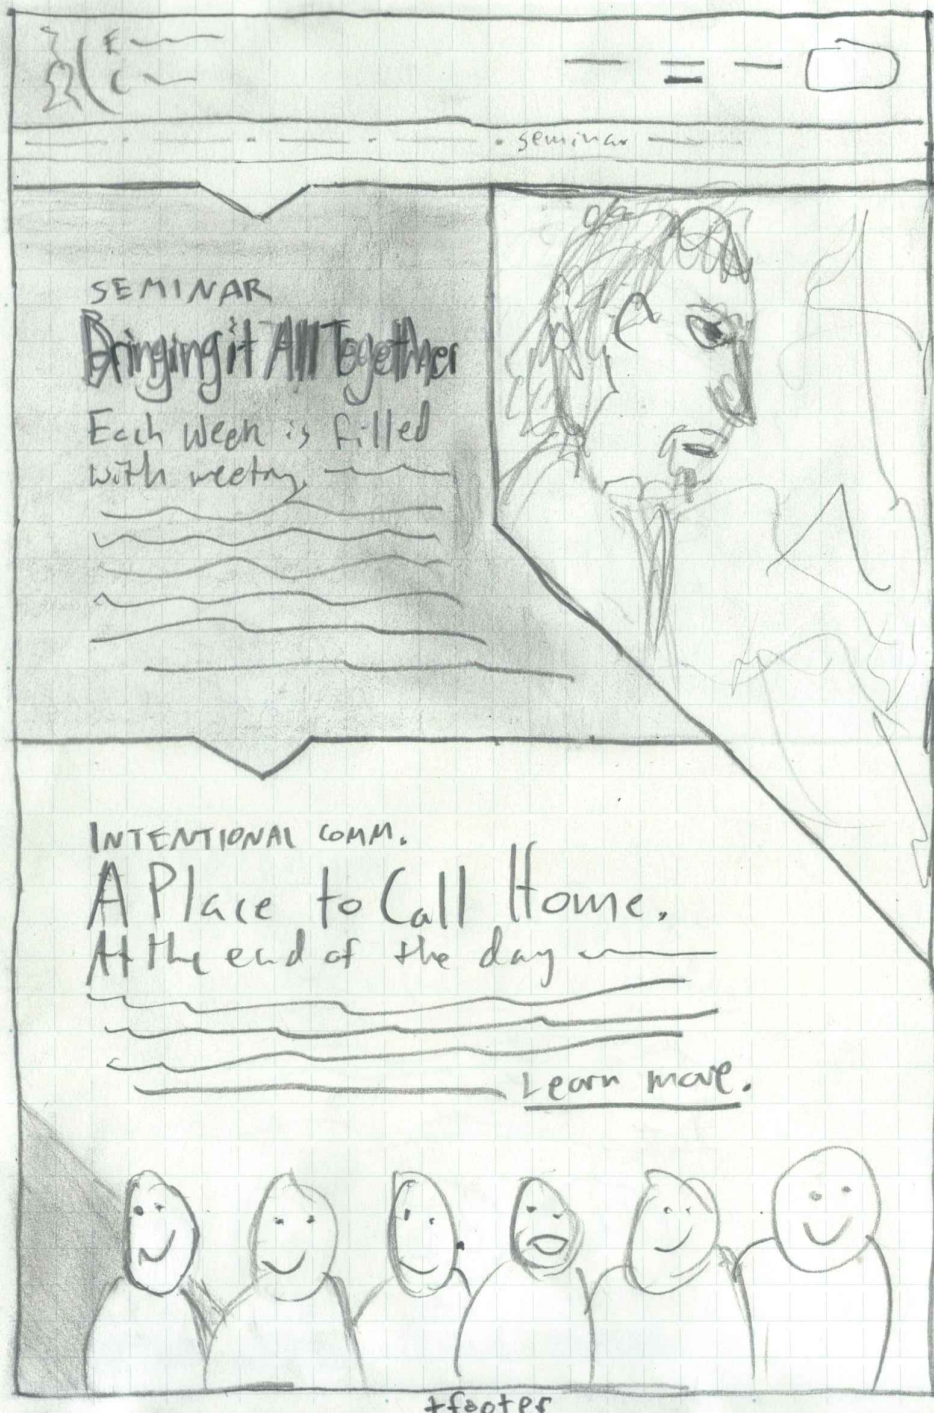 E
C
seminar
SEMINAR
Bringing it All Together
Each Week is filled
with
INTENTIONAL COMM.
A Place to Call Home.
At the end of the day
Learn more.
+footer